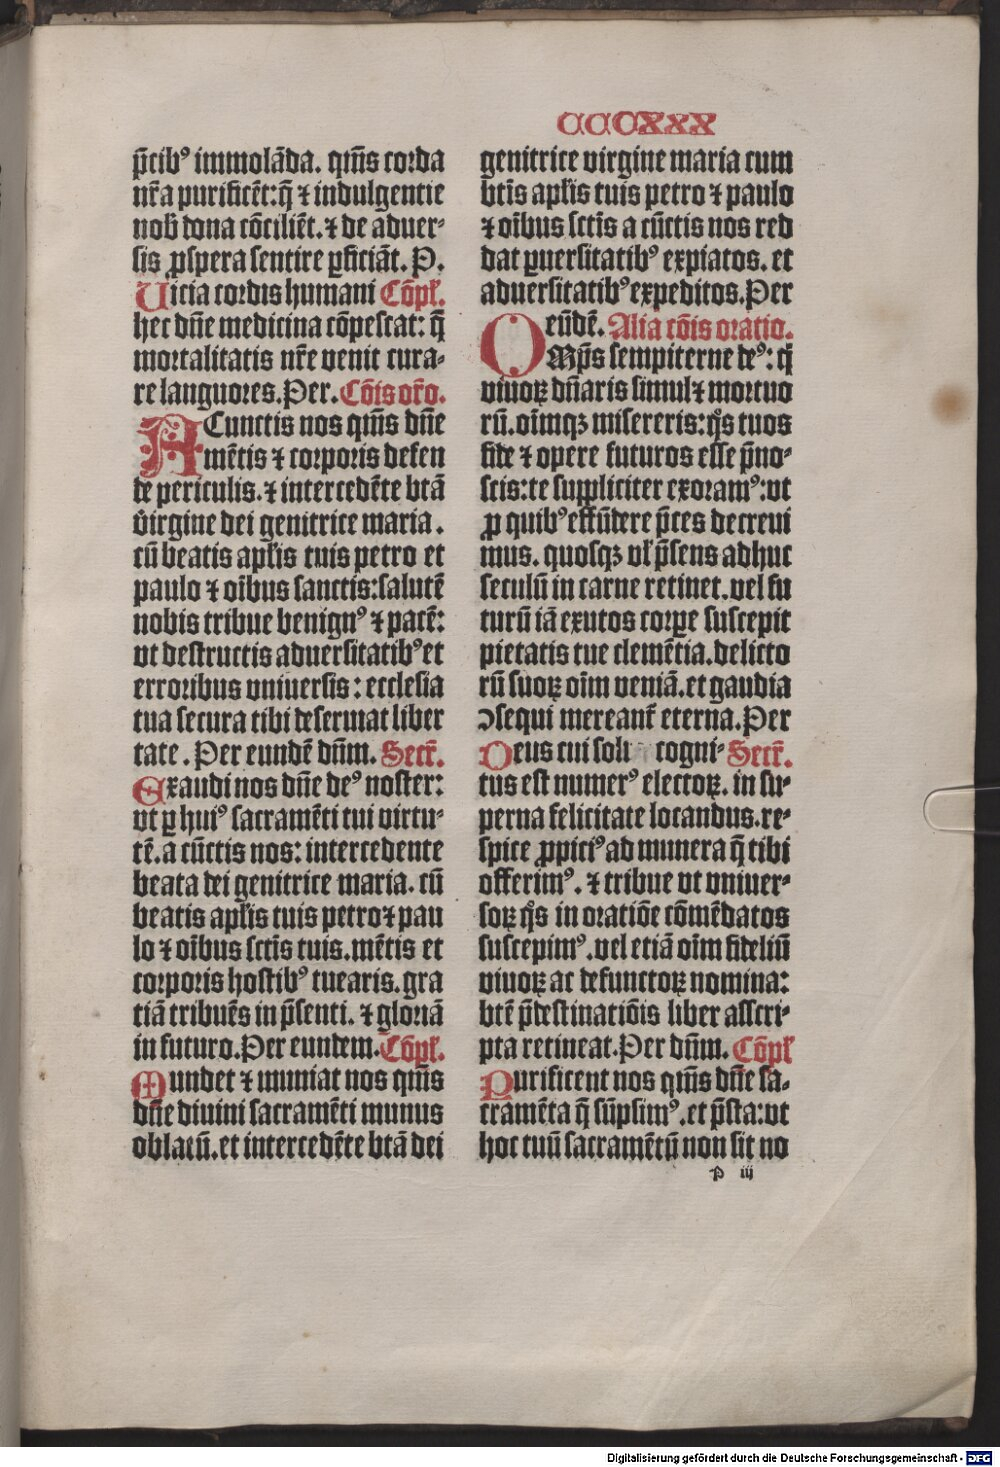 CCCXXX
p̄cibꝰ immolāda. qm̄s corda
nr̄a purificēt: q̄ ⁊ indulgentie
nob̄ dona cōciliēt. ⁊ de aduer-
sis ꝓspera sentire ꝑficiāt. P.
Uicia cordis humani Cōpl̄.
hec dn̄e medicina cōpescat: q̄
mortalitatis nr̄e venit cura-
re languores. Per. Cōis or̄o.
A Cunctis nos qm̄s dn̄e
mētis ⁊ corporis defen
de periculis. ⁊ intercedēte btā
v̄irgine dei genitrice maria.
cū beatis apl̄is tuis petro et
paulo ⁊ oībus sanctis: salutē
nobis tribue benignꝰ ⁊ pacē:
vt destructis aduersitatibꝰ et
erroribus vniuersis: ecclesia
tua secura tibi deseruiat liber
tate. Per eundē dn̄m. Secr̄.
Exaudi nos dn̄e deꝰ noster:
vt ꝑ huiꝰ sacramēti tui virtu-
tē. a cūctis nos: intercedente
beata dei genitrice maria. cū
beatis apl̄is tuis petro ⁊ pau
lo ⁊ oībus sctīs tuis. mētis et
corporis hostibꝰ tuearis. gra
tiā tribuēs in p̄senti. ⁊ gloriā
in futuro. Per eundem. Cōpl̄.
Mundet ⁊ muniat nos qm̄s
dn̄e diuini sacramēti munus
oblatū. et intercedēte btā dei
genitrice virgine maria cum
btīs apl̄is tuis petro ⁊ paulo
⁊ oībus sctīs a cūctis nos red
dat ꝑuersitatibꝰ expiatos. et
aduersitatibꝰ expeditos. Per
eūdē. Alia cōis oratio.
O Mp̄s sempiterne deꝰ: q̇
viuoꝝ dn̄aris simul ⁊ mortuo
rū. oīmqꝫ misereris: q̇s tuos
fide ⁊ opere futuros esse p̄no-
scis: te suppliciter exoramꝰ: vt
ꝓ quibꝰ effūdere p̄ces decreui
mus. quosqꝫ vl̄ p̄sens adhuc
seculū in carne retinet. vel fu
turū iā exutos corꝑe suscepit
pietatis tue clemētia. delicto
rū suoꝝ oīm veniā. et gaudia
ↄsequi mereant̄ eterna. Per
Deus cui soli cogni- Secr̄.
tus est numerꝰ electoꝝ. in su-
perna felicitate locandus. re-
spice ꝓpiciꝰ ad munera q̄ tibi
offerimꝰ. ⁊ tribue vt vniuer-
soꝝ q̇s in oratiōe cōmēdatos
suscepimꝰ. vel etiā oīm fideliū
viuoꝝ ac defunctoꝝ nomina:
btē p̄destinatiōis liber asscri-
pta retineat. Per dn̄m. Cōpl̄
Purificent nos qm̄s dn̄e sa-
cramēta q̄ sūpsimꝰ. et p̄sta: vt
hoc tuū sacramētū non sit no
P iij
Digitalisierung gefördert durch die Deutsche Forschungsgemeinschaft - DFG